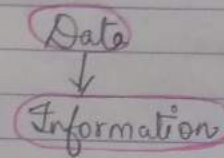 Data
Information